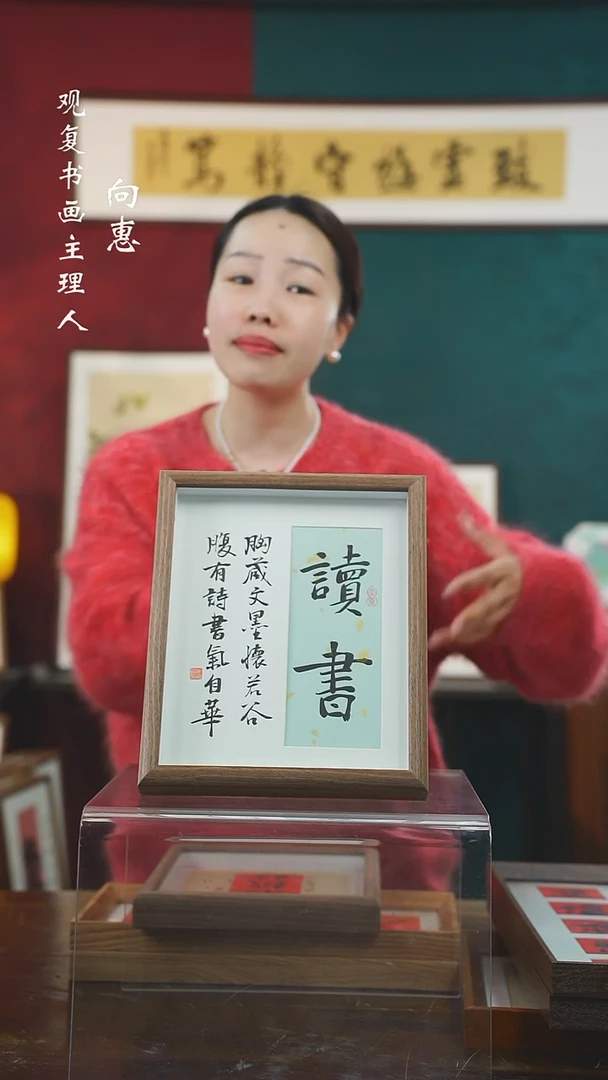 观复书画主理人
向惠
致虛極守靜篤
讀書
胸藏文墨懷若谷
腹有詩書氣自華